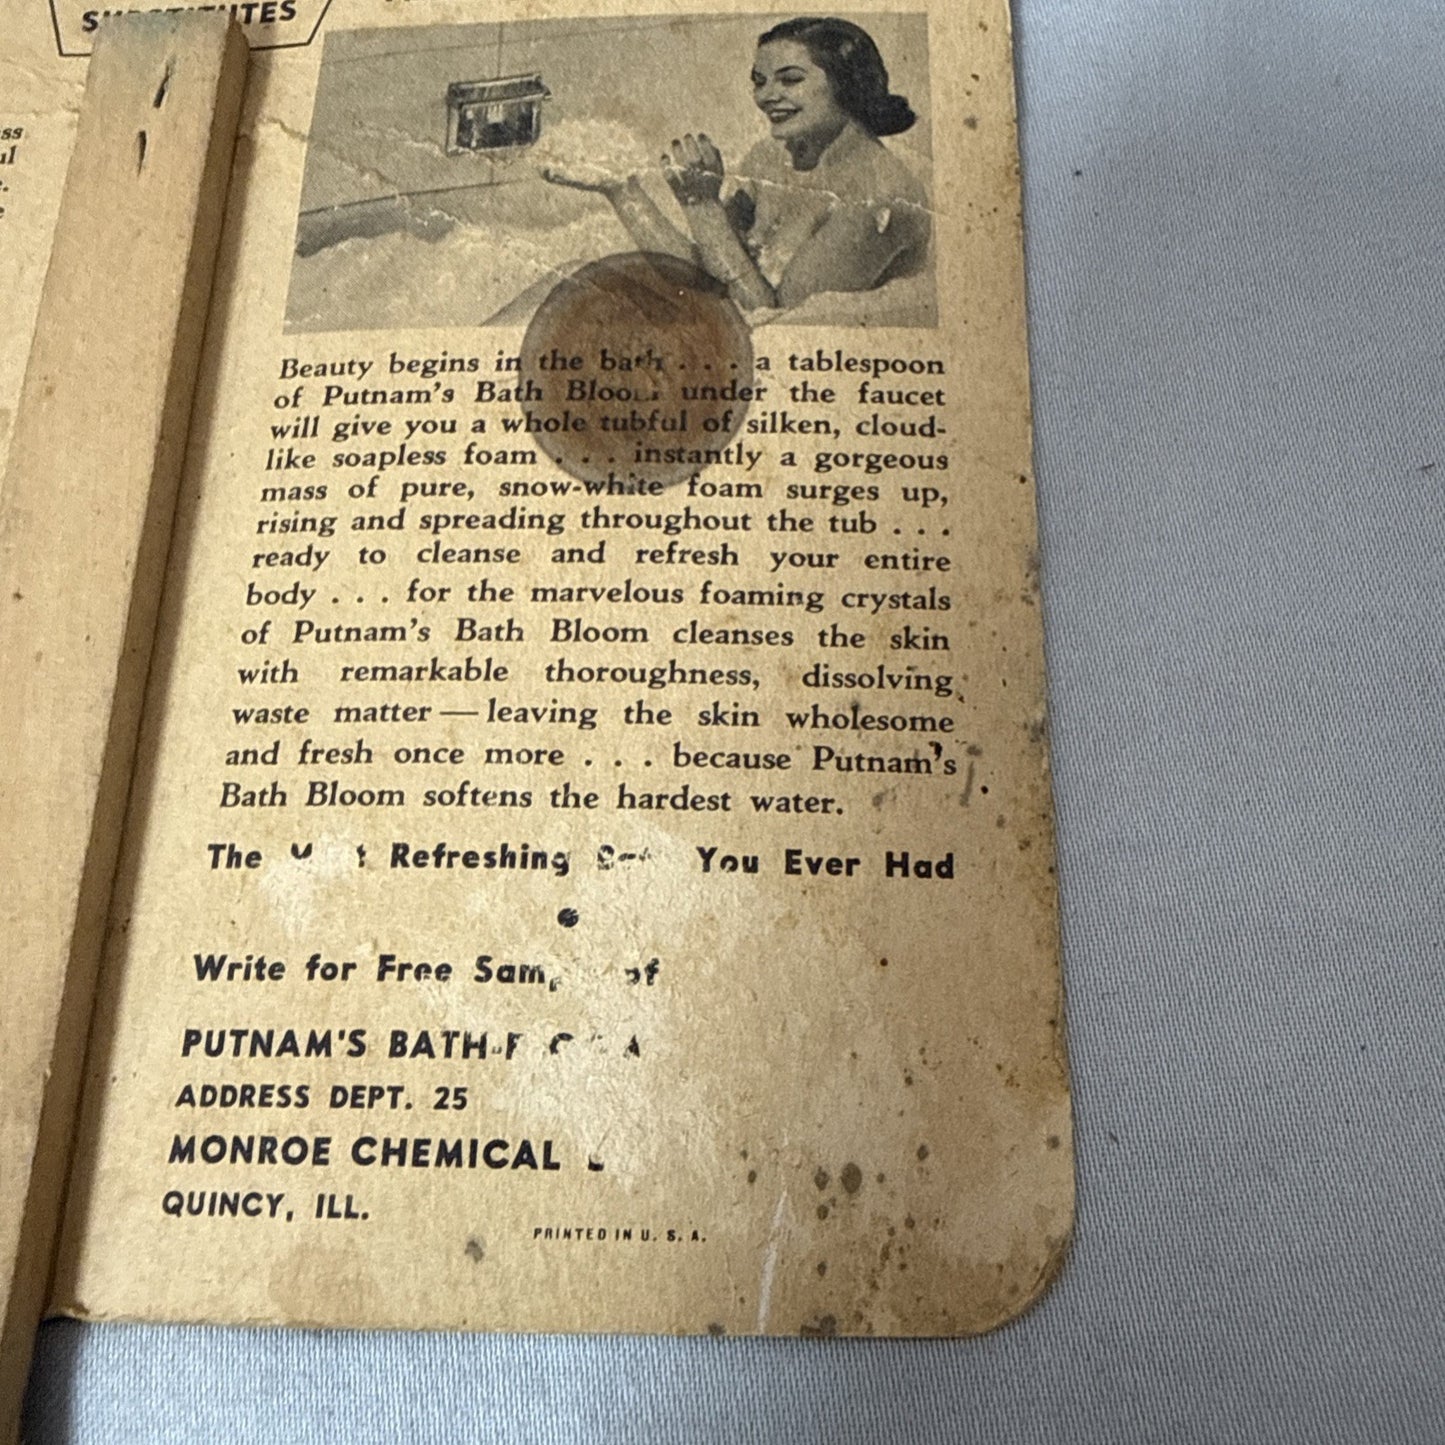 SUBSTITUTES
ss
ul
Beauty begins in the bath . . . a tablespoon
of Putnam's Bath Bloom under the faucet
will give you a whole tubful of silken, cloud-
like soapless foam . . . instantly a gorgeous
mass of pure, snow-white foam surges up,
rising and spreading throughout the tub . . .
ready to cleanse and refresh your entire
body . . . for the marvelous foaming crystals
of Putnam's Bath Bloom cleanses the skin
with remarkable thoroughness, dissolving
waste matter — leaving the skin wholesome
and fresh once more . . . because Putnam's
Bath Bloom softens the hardest water.
The Refreshing You Ever Had
Write for Free of
PUTNAM'S BATH
ADDRESS DEPT. 25
MONROE CHEMICAL
QUINCY, ILL.
PRINTED IN U. S. A.